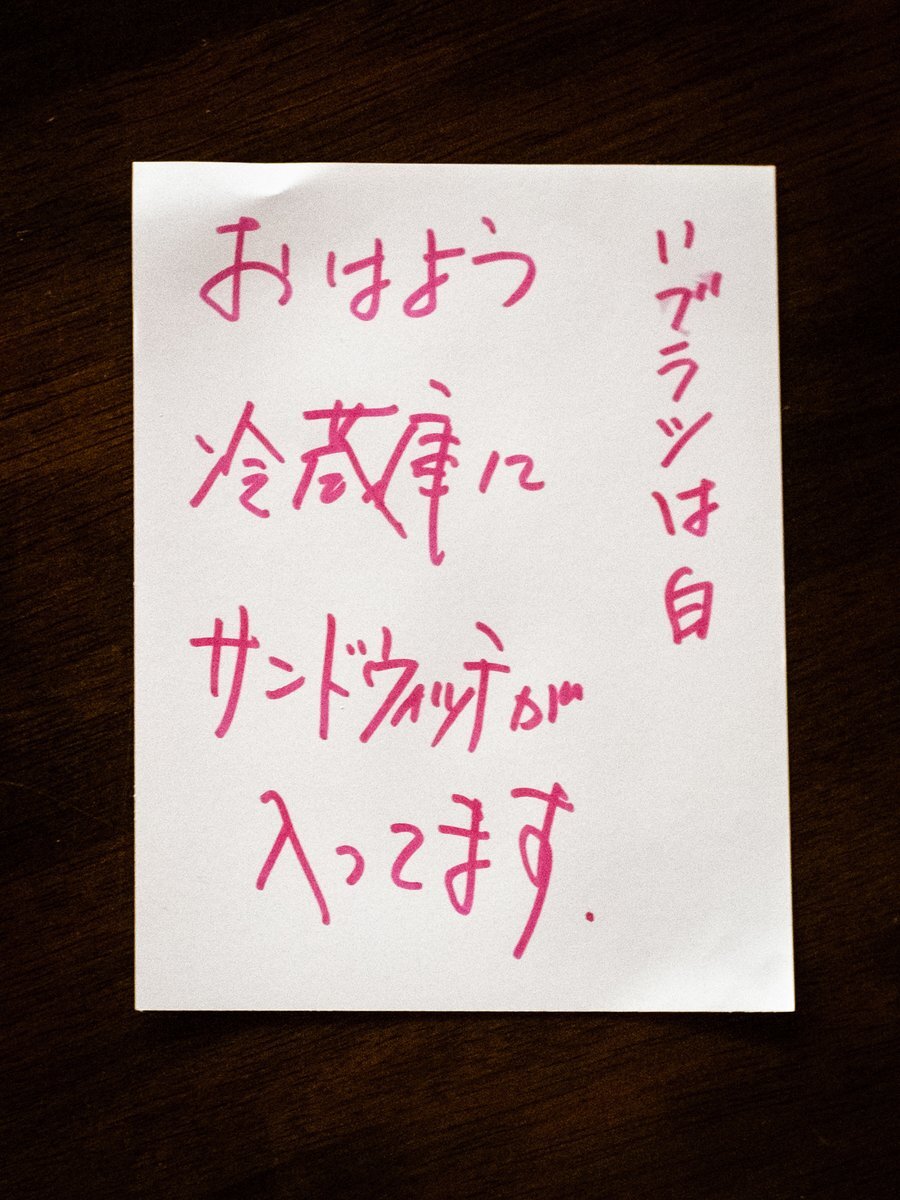 おはよう
冷蔵庫に
サンドウィッチが
入ってます.
ハブラシは白